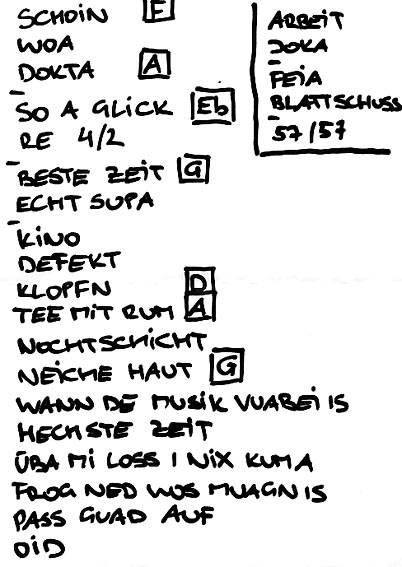 SCHOIN E
WOA
DOKTA A
SO A GLICK Eb
RE 4/2
BESTE ZEIT G
ECHT SUPA
KINO
DEFEKT
KLOPFN D
TEE MIT RUM A
NOCHTSCHICHT
NEICHE HAUT G
WANN DE MUSIK VUABEI IS
HECHSTE ZEIT
ÜBA MI LOSS I NIX KUMA
FROG NED WOS MUAGN IS
PASS GUAD AUF
OID
ARBEIT
DOKA
FEIA
BLATTSCHUSS
57/57